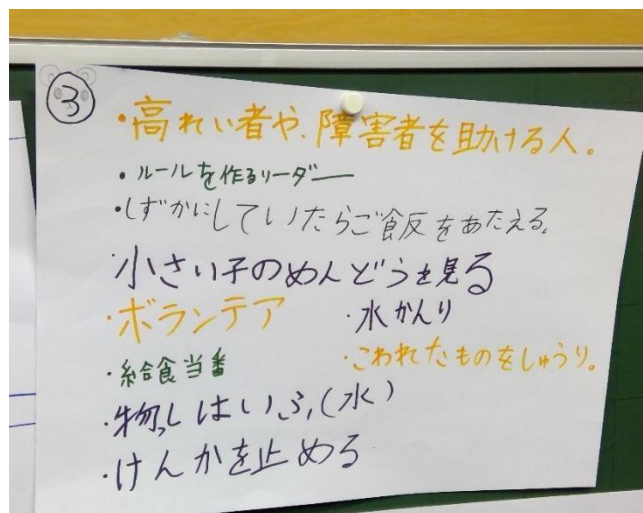 3
・高れい者や、障害者を助ける人。
・ルールを作るリーダー
・しずかにしていたらご飯をあたえる。
・小さい子のめんどうを見る
・ボランテア ・水かんり
・給食当番 ・こわれたものをしゅうり。
・物しはいふ(水)
・けんかを止める